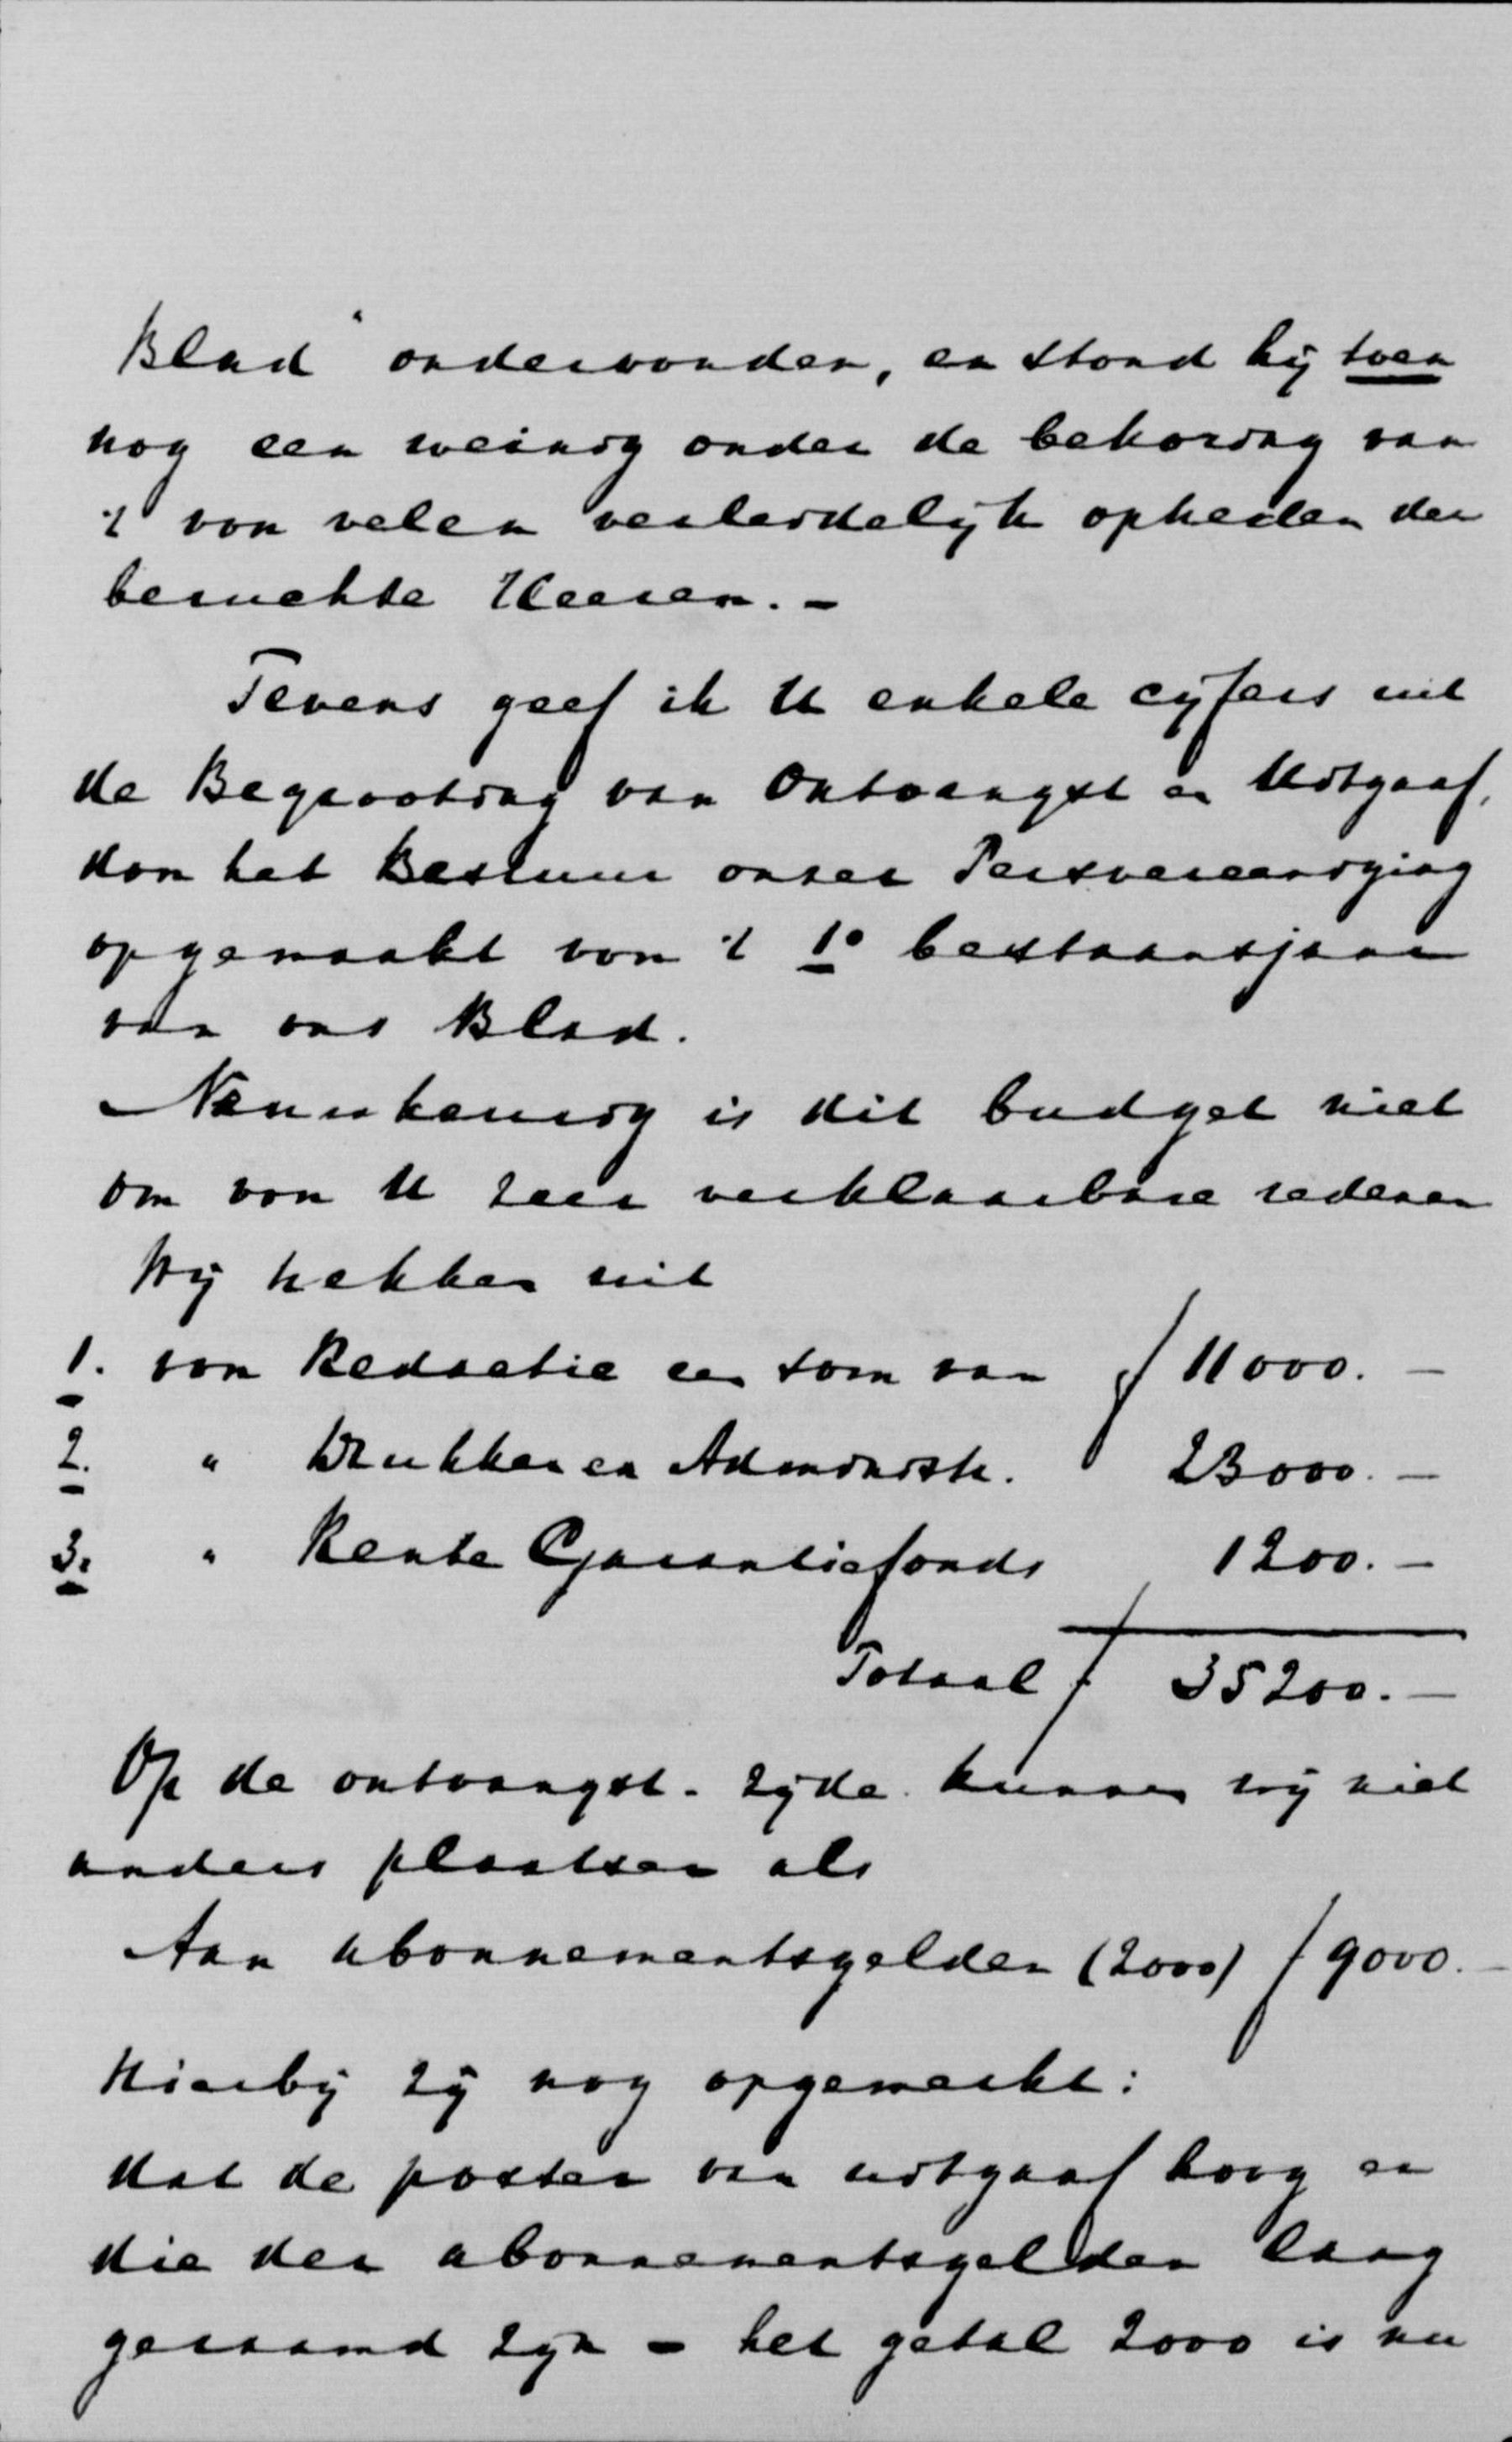 Blad" ondervonden, en stond hij toen
nog een weinig onder de bekoring van
't voor velen verleidelijk optreden der
beruchte Heeren. -
Tevens geef ik U enkele cijfers uit
de Begrooting van Ontvangst en Uitgaaf,
door het Bestuur onzer Persvereeniging
opgemaakt voor 't 1e bestaansjaar
van ons Blad.
Nauwkeurig is dit budget niet
om voor U zeer verklaarbare redenen
Wij trekken uit
1. voor Redactie een som van f 11000. -
2. " Drukker en Administr. 23000. -
3. " Rente Garantiefonds 1200. -
Totaal f 35200. -
Op de ontvangst-zijde kunnen wij niet
anders plaatsen als
Aan abonnementsgelden (2000) f 9000. -
Hierbij zij nog opgemerkt:
dat de posten van uitgaaf hoog en
die der abonnementsgelden laag
geraamd zijn - het getal 2000 is nu